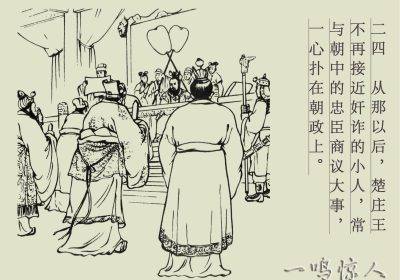 二四　从那以后，楚庄王
不再接近奸诈的小人，常
与朝中的忠臣商议大事，
一心扑在朝政上。
一鸣惊人